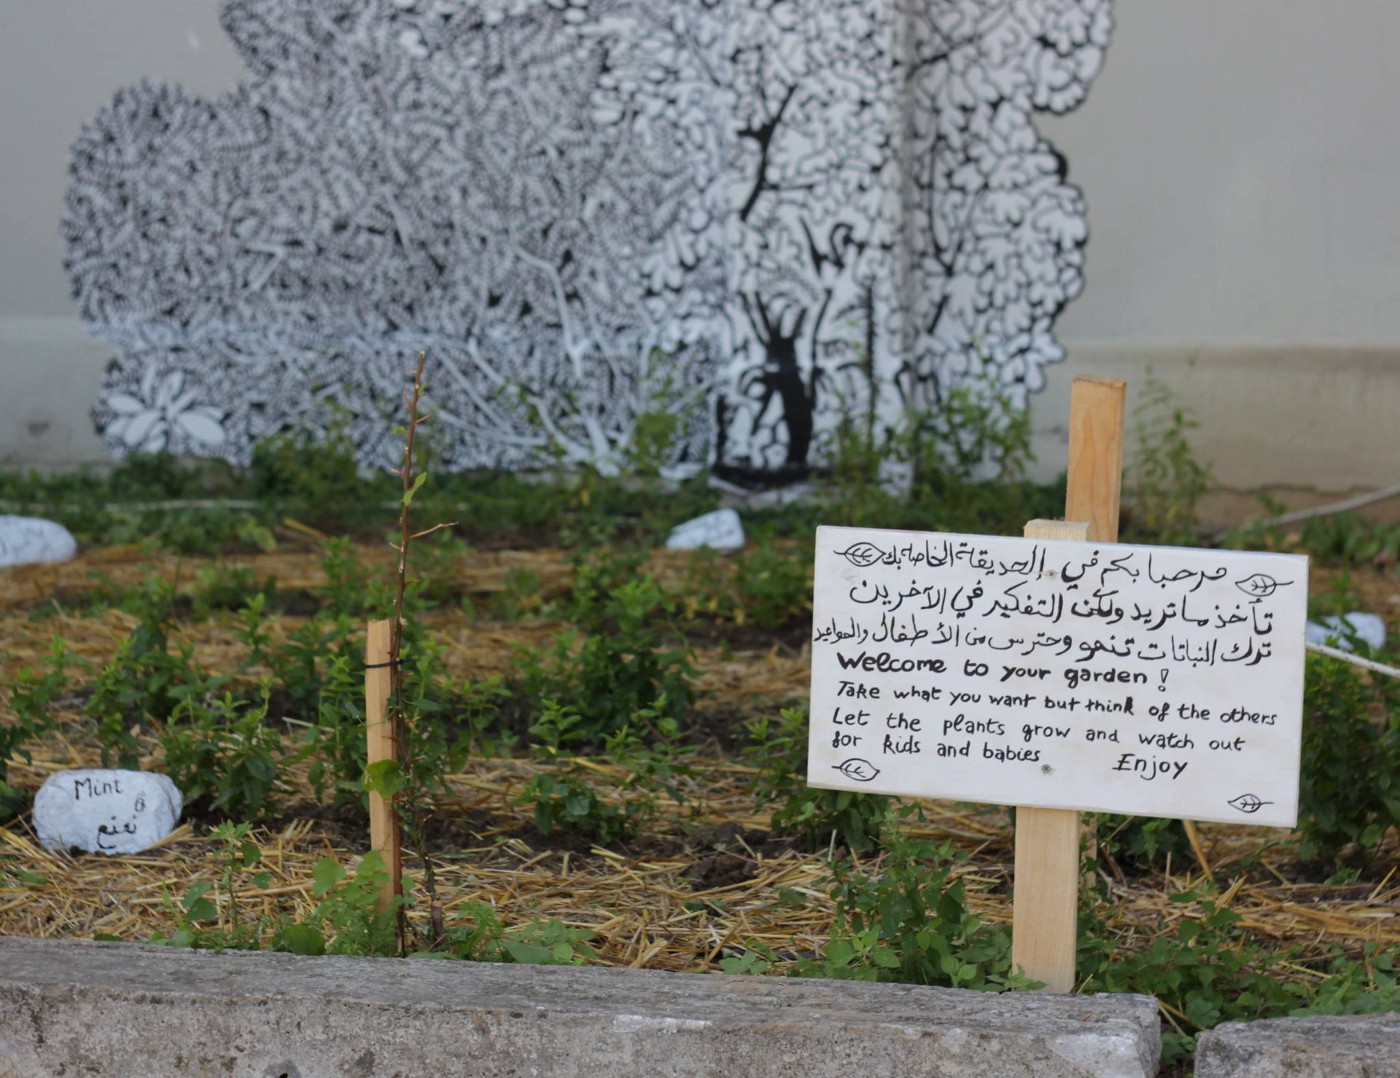 مرحبا بكم في الحديقة الخاصة بك
تأخذ ما تريد ولكن التفكير في الآخرين
ترك النباتات تنمو وحترس من الأطفال والمواعيد
Welcome to your garden!
Take what you want but think of the others
Let the plants grow and watch out
for kids and babies Enjoy
Mint
نعنع